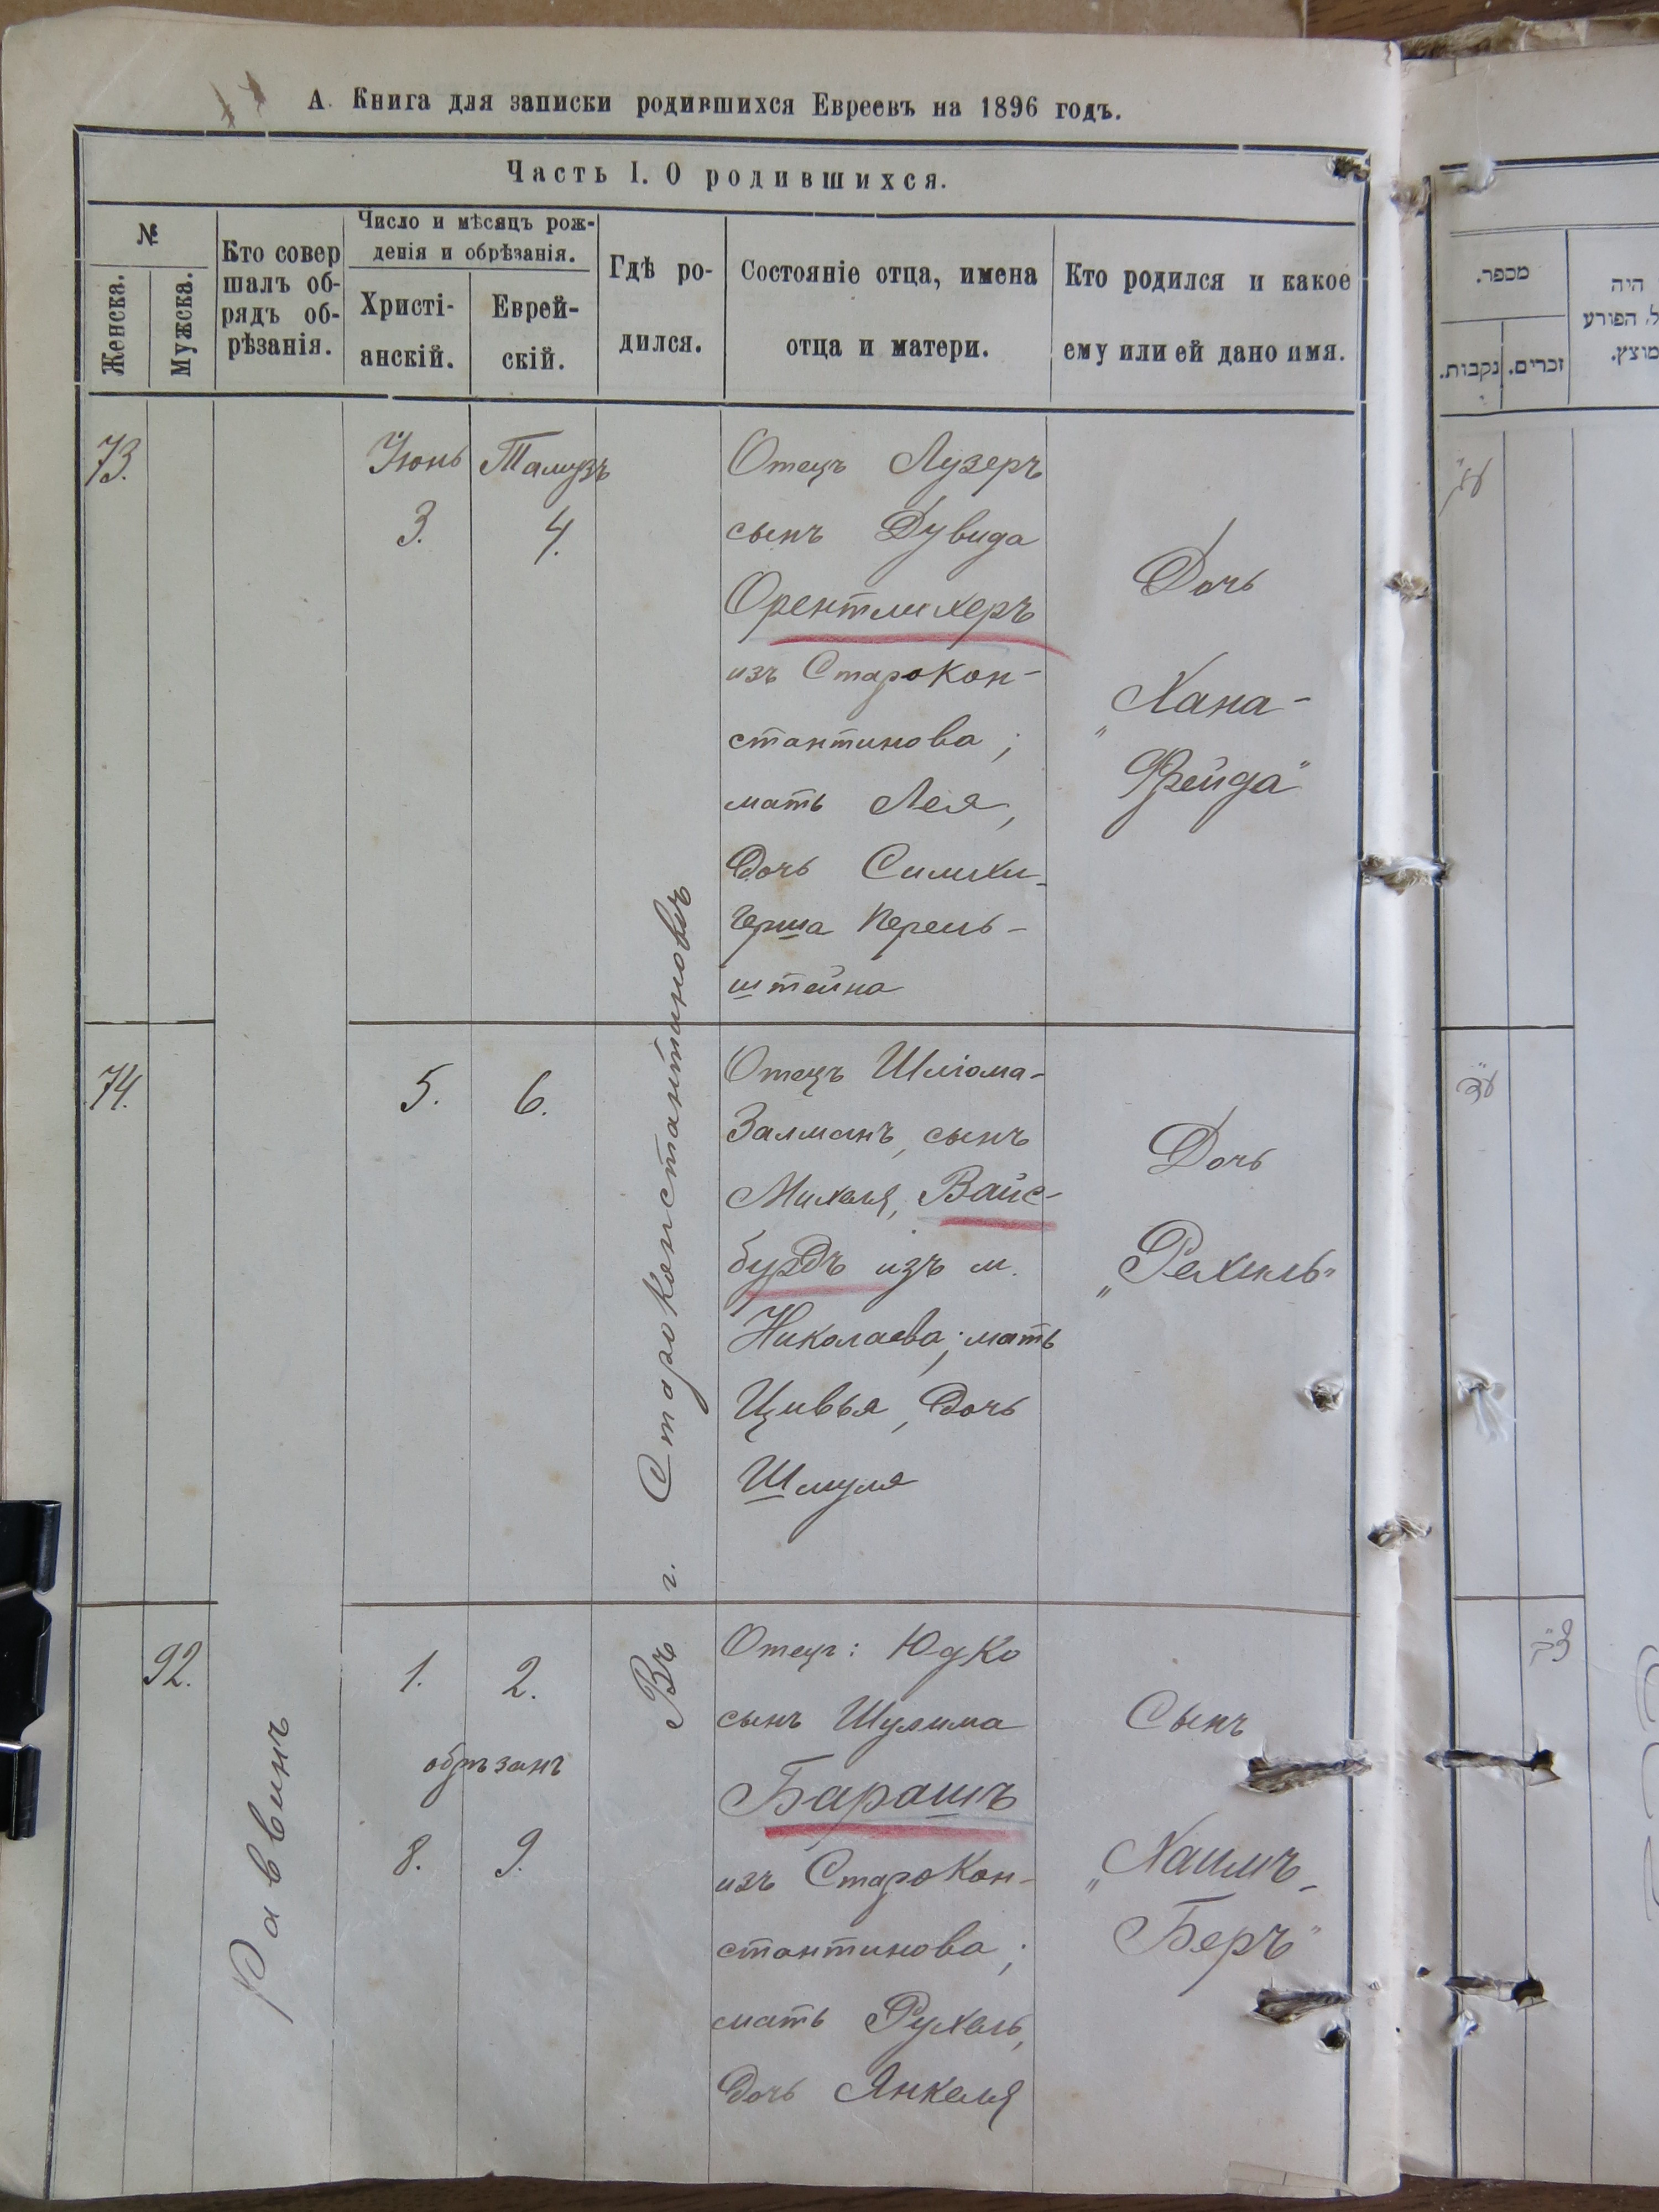 А. Книга для записки родившихся Евреевъ на 1896 годъ.
Часть I. О родившихся.
№
Женска.
Мужска.
Кто совер
шалъ об-
рядъ об-
рѣзанія.
Число и мѣсяцъ рож-
денія и обрѣзанія.
Христі-
анскій.
Еврей-
скій.
Гдѣ ро-
дился.
Состояніе отца, имена
отца и матери.
Кто родился и какое
ему или ей дано имя.
73.
Іюнь
3.
Тамузъ
4.
Отецъ Лузеръ
сынъ Дувида
Орентлихеръ
изъ Старокон-
стантинова;
мать Лея,
дочь Симхи-
Герша Перель-
штейна
Дочь
„Хана-
Фрейда"
74.
5.
6.
Отецъ Шліома-
Залманъ, сынъ
Михеля, Вайс-
бурдъ изъ м.
Николаева; мать
Цивья, дочь
Шмуля
Дочь
„Рехиль"
92.
Раввинъ
1.
2.
обрѣзанъ
8.
9.
Въ г. Староконстантиновѣ
Отецъ: Юдко
сынъ Шулима
Барашъ
изъ Старокон-
стантинова;
мать Рухель,
дочь Янкеля
Сынъ
„Хаимъ-
Беръ"
מספר.
נקבות.
זכרים.
היה
הפורע
מוצץ.